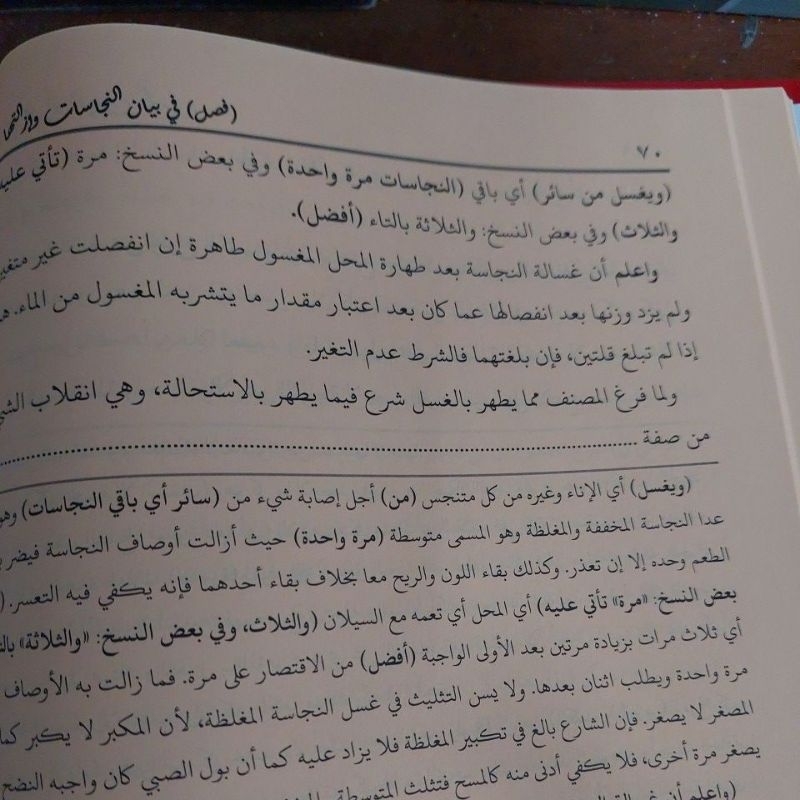 (فصل) في بيان النجاسات وإزالتها
٧٠
(ويغسل من سائر) أي باقي (النجاسات مرة واحدة) وفي بعض النسخ: مرة (تأتي عليه
والثلاث) وفي بعض النسخ: والثلاثة بالتاء (أفضل).
واعلم أن غسالة النجاسة بعد طهارة المحل المغسول طاهرة إن انفصلت غير متغير
ولم يزد وزنها بعد انفصالها عما كان بعد اعتبار مقدار ما يتشربه المغسول من الماء.
إذا لم تبلغ قلتين، فإن بلغتهما فالشرط عدم التغير.
ولما فرغ المصنف مما يطهر بالغسل شرع فيما يطهر بالاستحالة، وهي انقلاب الشي
من صفة ........................................................................
(ويغسل) أي الإناء وغيره من كل متنجس (من) أجل إصابة شيء من (سائر أي باقي النجاسات) وهو
عدا النجاسة المخففة والمغلظة وهو المسمى متوسطة (مرة واحدة) حيث أزالت أوصاف النجاسة فيضر
الطعم وحده إلا إن تعذر. وكذلك بقاء اللون والريح معا بخلاف بقاء أحدهما فإنه يكفي فيه التعسر. (
بعض النسخ: «مرة» تأتي عليه) أي المحل أي تعمه مع السيلان (والثلاث، وفي بعض النسخ: «والثلاثة» بالت
أي ثلاث مرات بزيادة مرتين بعد الأولى الواجبة (أفضل) من الاقتصار على مرة. فما زالت به الأوصاف
مرة واحدة ويطلب اثنان بعدها. ولا يسن التثليث في غسل النجاسة المغلظة، لأن المكبر لا يكبر كما
المصغر لا يصغر. فإن الشارع بالغ في تكبير المغلظة فلا يزاد عليه كما أن بول الصبي كان واجبه النضح
يصغر مرة أخرى، فلا يكفي أدنى منه كالمسح فتثلث المتوسطة
(واعلم أن